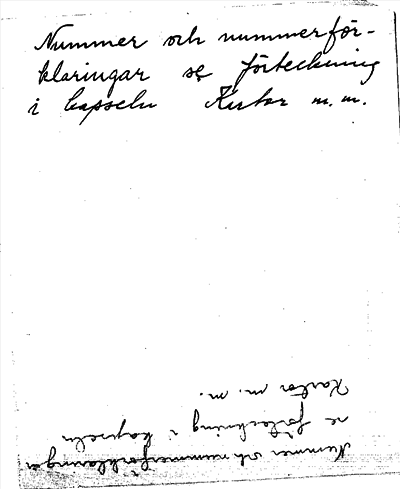 Nummer och nummerför-
klaringar se förteckning
i kapseln Kartor m. m.
Nummer och nummerförklaringar
se förteckning i kapseln
Kartor m. m.